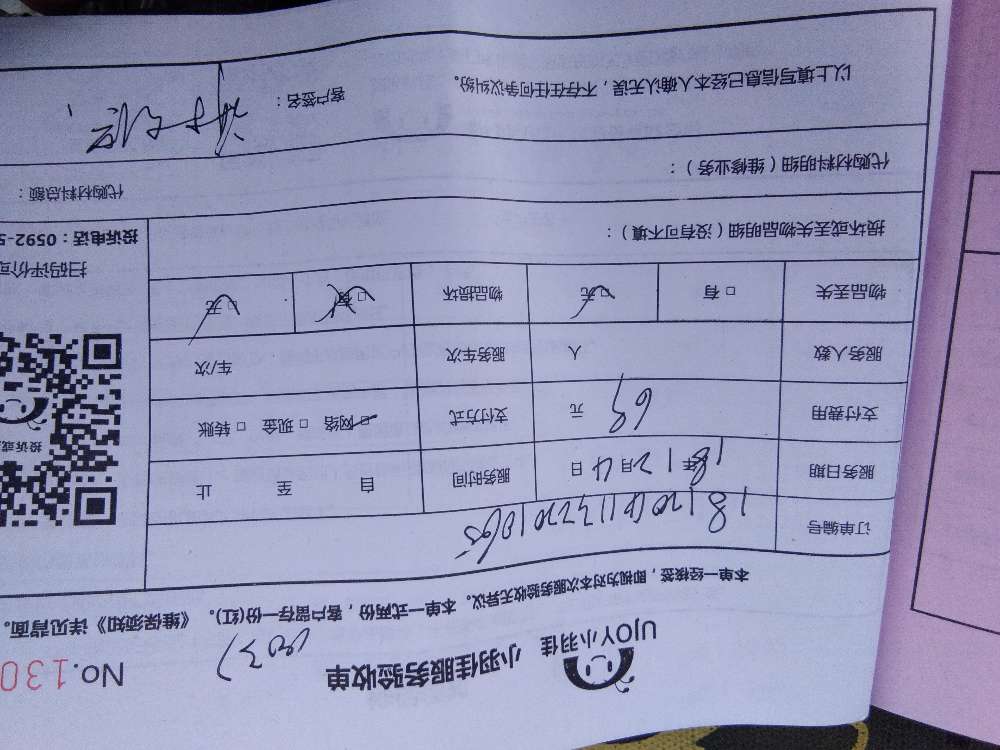 UJOY小羽佳 小羽佳服务验收单 No.130
本单一经核签，即视为对本次服务验收无异议。本单一式两份，客户留存一份(红)。《维保须知》详见背面。
订单编号
服务日期 18年12月4日 服务时间 自 至 止
支付费用 69元 支付方式 □网络 □现金 □转账
服务人数 人 服务车次 车/次
物品丢失 □有 □无 物品损坏 □有 □无
投诉或
扫码评价或
投诉电话：0592-5
损坏或丢失物品明细（没有可不填）：
代购材料明细（维修业务）： 代购材料总额：
以上填写信息已经本人确认无误，不存在任何争议纠纷。 客户签名：